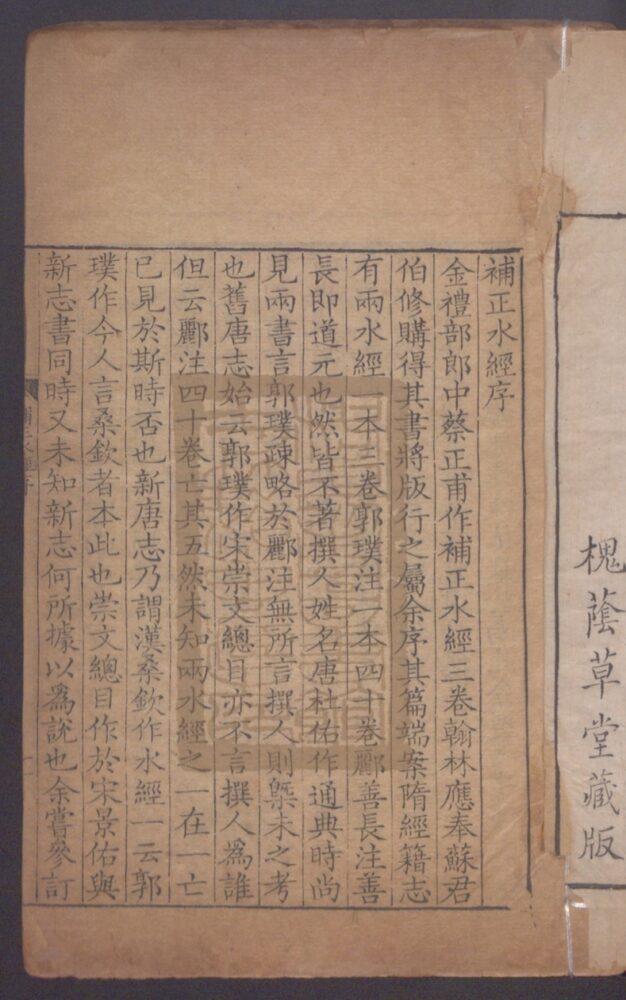 槐蔭草堂藏版
補正水經序
金禮部郎中蔡正甫作補正水經三卷翰林應奉蘇君
伯修購得其書將版行之屬余序其篇端案隋經籍志
有兩水經一本三卷郭璞注一本四十卷酈善長注善
長即道元也然皆不著撰人姓名唐杜佑作通典時尚
見兩書言郭璞疎略於酈注無所言撰人則槩未之考
也舊唐志始云郭璞作宋崇文總目亦不言撰人為誰
但云酈注四十卷亡其五然未知兩水經之一在一亡
已見於斯時否也新唐志乃謂漢桑欽作水經一云郭
璞作今人言桑欽者本此也崇文總目作於宋景佑與
新志書同時又未知新志何所據以為說也余嘗參訂